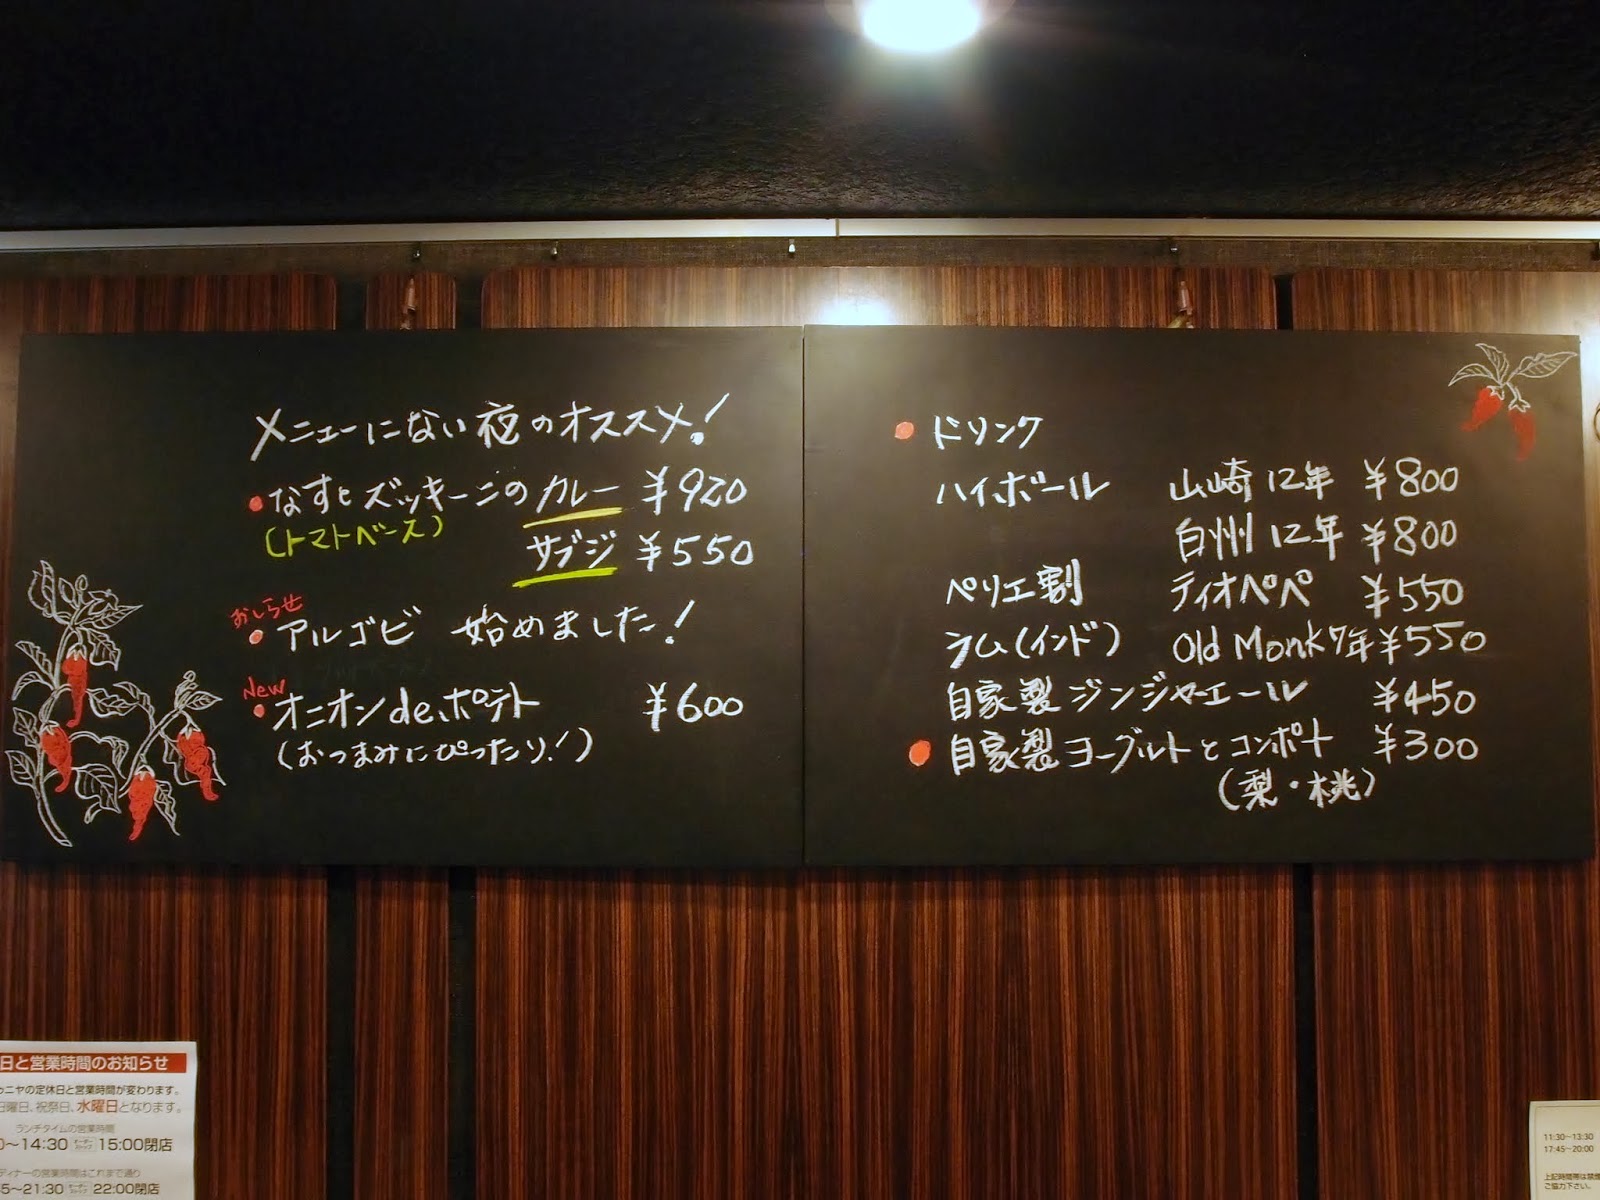 メニューにない夜のオススメ！
なすとズッキーニのカレー ¥920
(トマトベース)
サブジ ¥550
おしらせ
アルゴビ 始めました！
New
オニオンdeポテト ¥600
(おつまみにぴったり！)
ドリンク
ハイボール 山崎12年 ¥800
白州12年 ¥800
ペリエ割 ティオペペ ¥550
ラム(インド) Old Monk7年 ¥550
自家製ジンジャーエール ¥450
自家製ヨーグルトとコンポート ¥300
(梨・桃)
日と営業時間のお知らせ
ゥニヤの定休日と営業時間が変わります。
日曜日、祝祭日、水曜日となります。
ランチタイムの営業時間
0〜14:30 15:00閉店
ディナーの営業時間はこれまで通り
5〜21:30 22:00閉店
11:30〜13:30
17:45〜20:00
上記時間帯は禁煙
ご協力下さい。